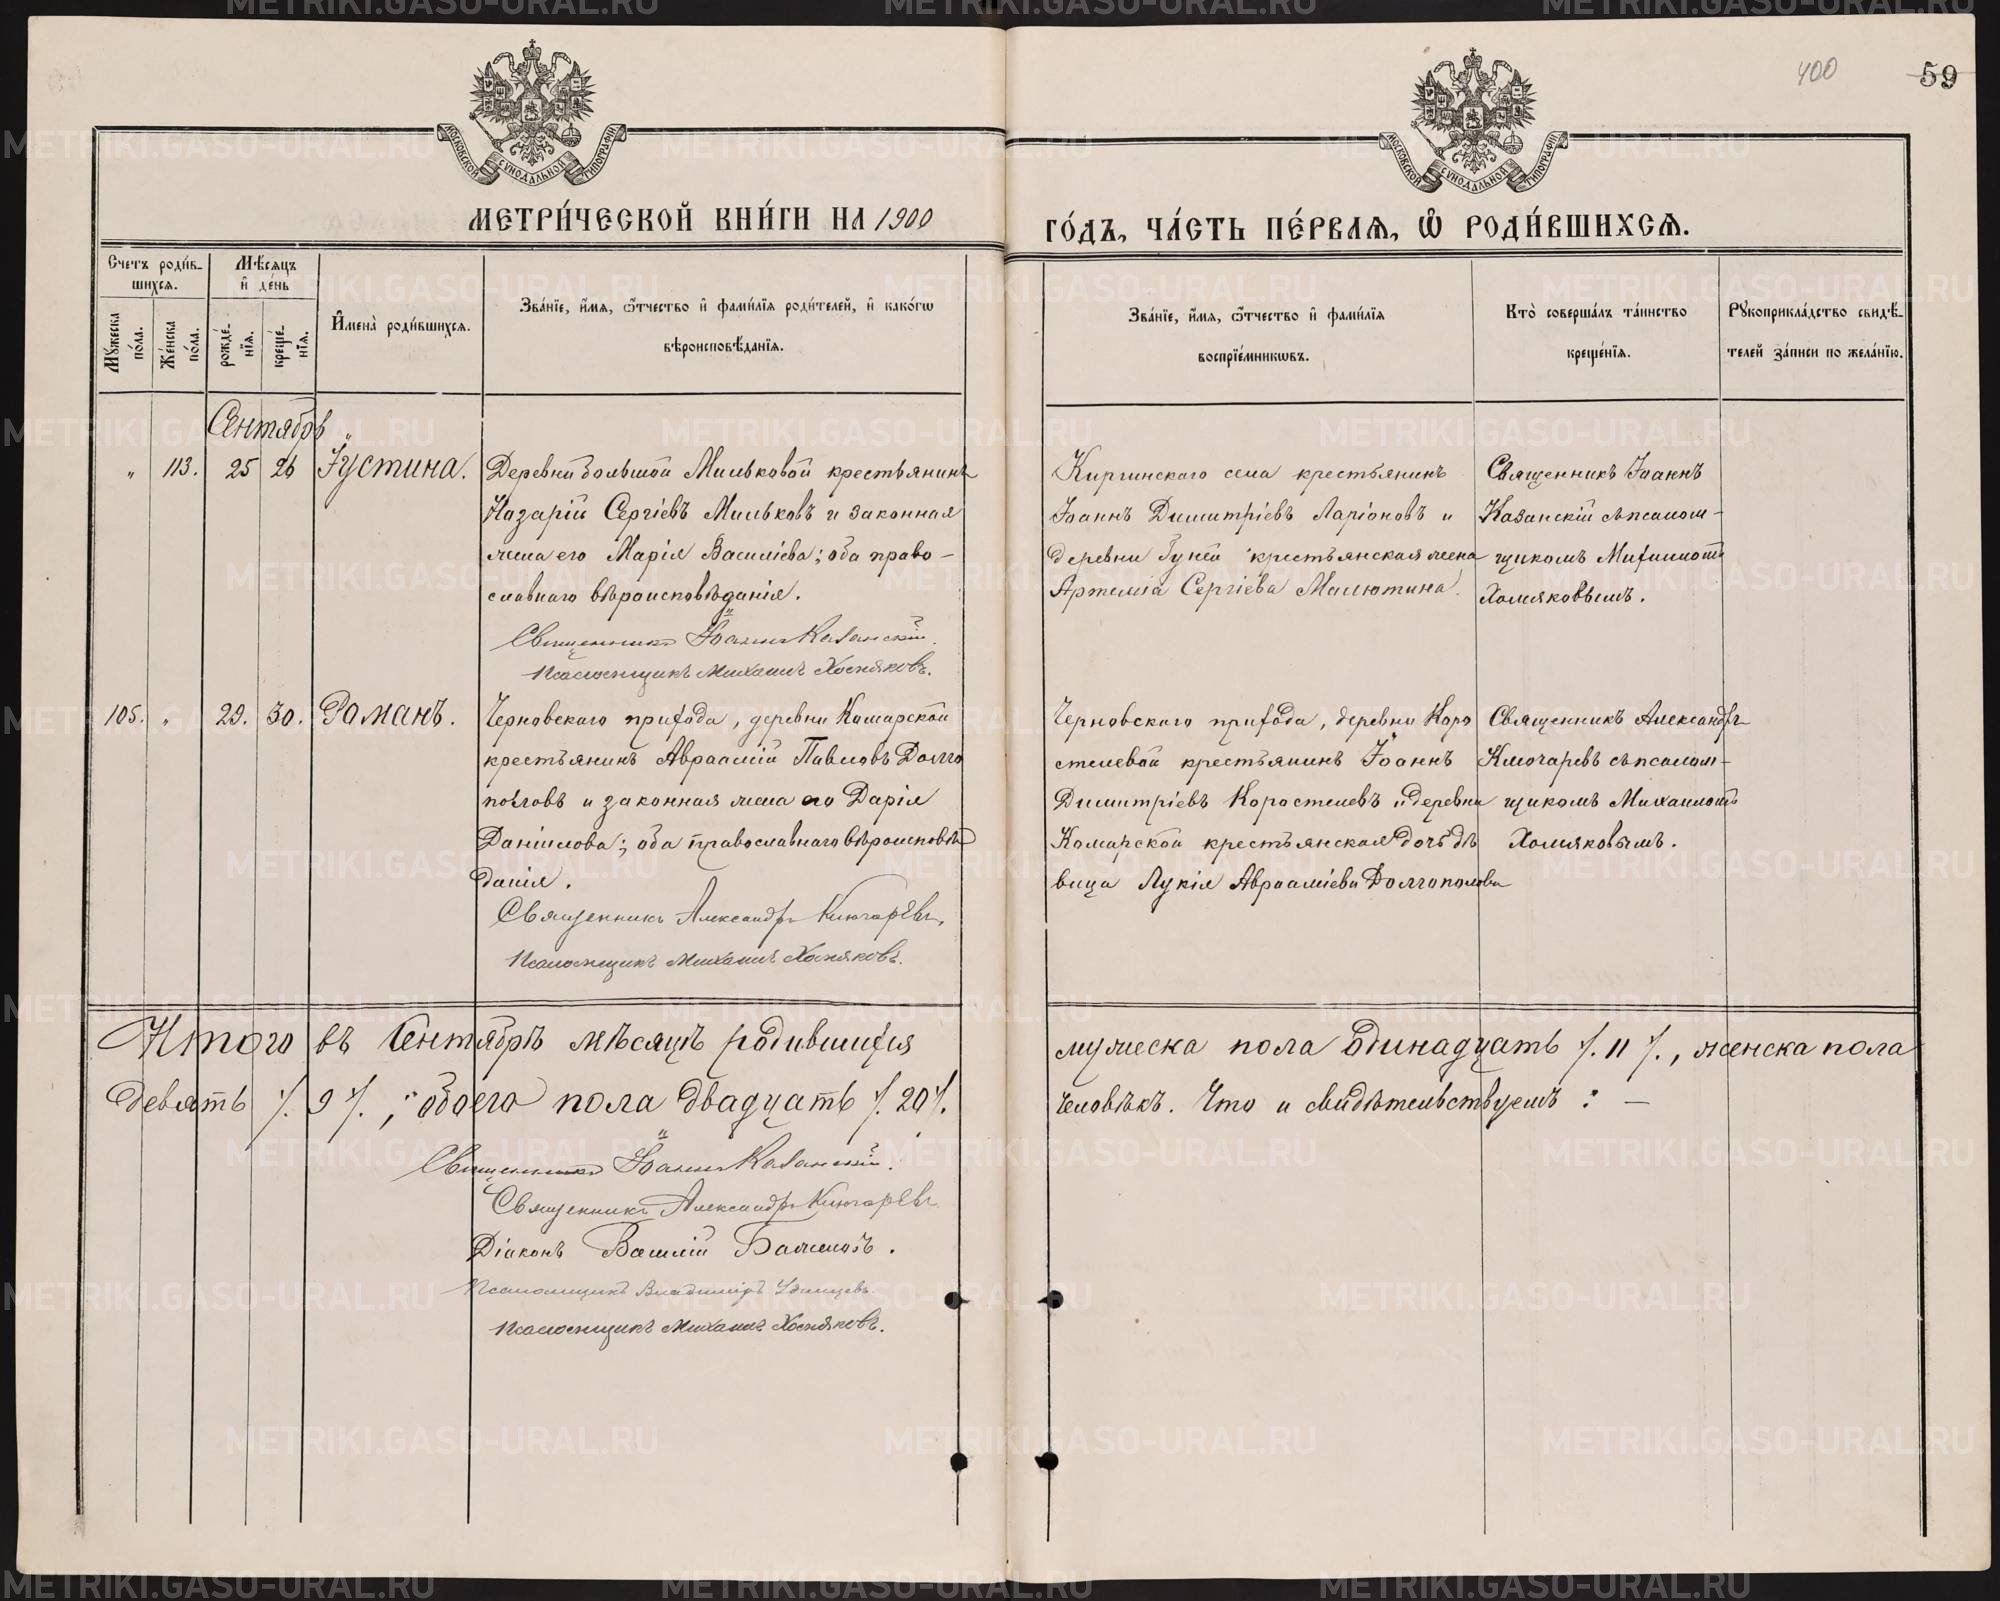 400
59
МОСКОВСКОЙ СѴНОДАЛЬНОЙ ТИПОГРАФІИ
МОСКОВСКОЙ СѴНОДАЛЬНОЙ ТИПОГРАФІИ
МЕТРИ́ЧЕСКОЙ КНИ́ГИ НА 1900
ГО́ДЪ, ЧА́СТЬ ПЕ́РВАЯ, Ѡ҆ РОДИ́ВШИХСЯ.
Счетъ роди́в-
шихся.
Мужеска по́ла.
Же́нска по́ла.
Мѣ́сяцъ
и҆ де́нь
рожде́-
нїя.
креще́-
нїя.
И҆мена̀ роди́вшихся.
Зва́нїе, и҆́мя, ѻ҆́тчество и҆ фами́лїя роди́телей, и҆ како́гѡ
вѣроисповѣ́данїя.
Зва́нїе, и҆́мя, ѻ҆́тчество и҆ фами́лїя
воспрїе́мникѡвъ.
Кто̀ соверша́лъ та́инство
креще́нїя.
Рукоприкла́дство свидѣ́-
телей за́писи по жела́нїю.
Сентябрь
" 113. 25 26 Іустина.
Деревни Большой Мильковой крестьянинъ
Назарій Сергіевъ Мильковъ и законная
жена его Марія Василіева; оба право-
славнаго вѣроисповѣданія.
Священникъ Іоаннъ Казанскій.
Псаломщикъ Михаилъ Хомяковъ.
Киргинскаго села крестьянинъ
Іоаннъ Димитріевъ Ларіоновъ и
деревни крестьянская жена
Артемія Сергіева Малютина.
Священникъ Іоаннъ
Казанскій съ псалом-
щикомъ Михаиломъ
Хомяковымъ.
105. " 29. 30. Романъ.
Черновскаго прихода, деревни Комарской
крестьянинъ Авраамій Павловъ Долго
половъ и законная жена его Дарія
Даніилова; оба православнаго вѣроисповѣ
данія.
Священникъ Александръ Ключаревъ.
Псаломщикъ Михаилъ Хомяковъ.
Черновскаго прихода, деревни Коро
стелевой крестьянинъ Іоаннъ
Димитріевъ Коростелевъ и деревни
Комарской крестьянская дочь дѣ
вица Лукія Авраамиева Долгополова
Священникъ Александръ
Ключаревъ съ псалом-
щикомъ Михаиломъ
Хомяковымъ.
Итого въ Сентябрѣ мѣсяцѣ родившихся
мужеска пола одинадцать /. 11 /., женска пола
девять /. 9 /.; обоего пола двадцать /. 20 /.
человѣкъ. Что и свидѣтельствуемъ: —
Священникъ Іоаннъ Казанскій.
Священникъ Александръ Ключаревъ
Діаконъ Василій
Псаломщикъ Владиміръ Удинцевъ.
Псаломщикъ Михаилъ Хомяковъ.
METRIKI.GASO-URAL.RU